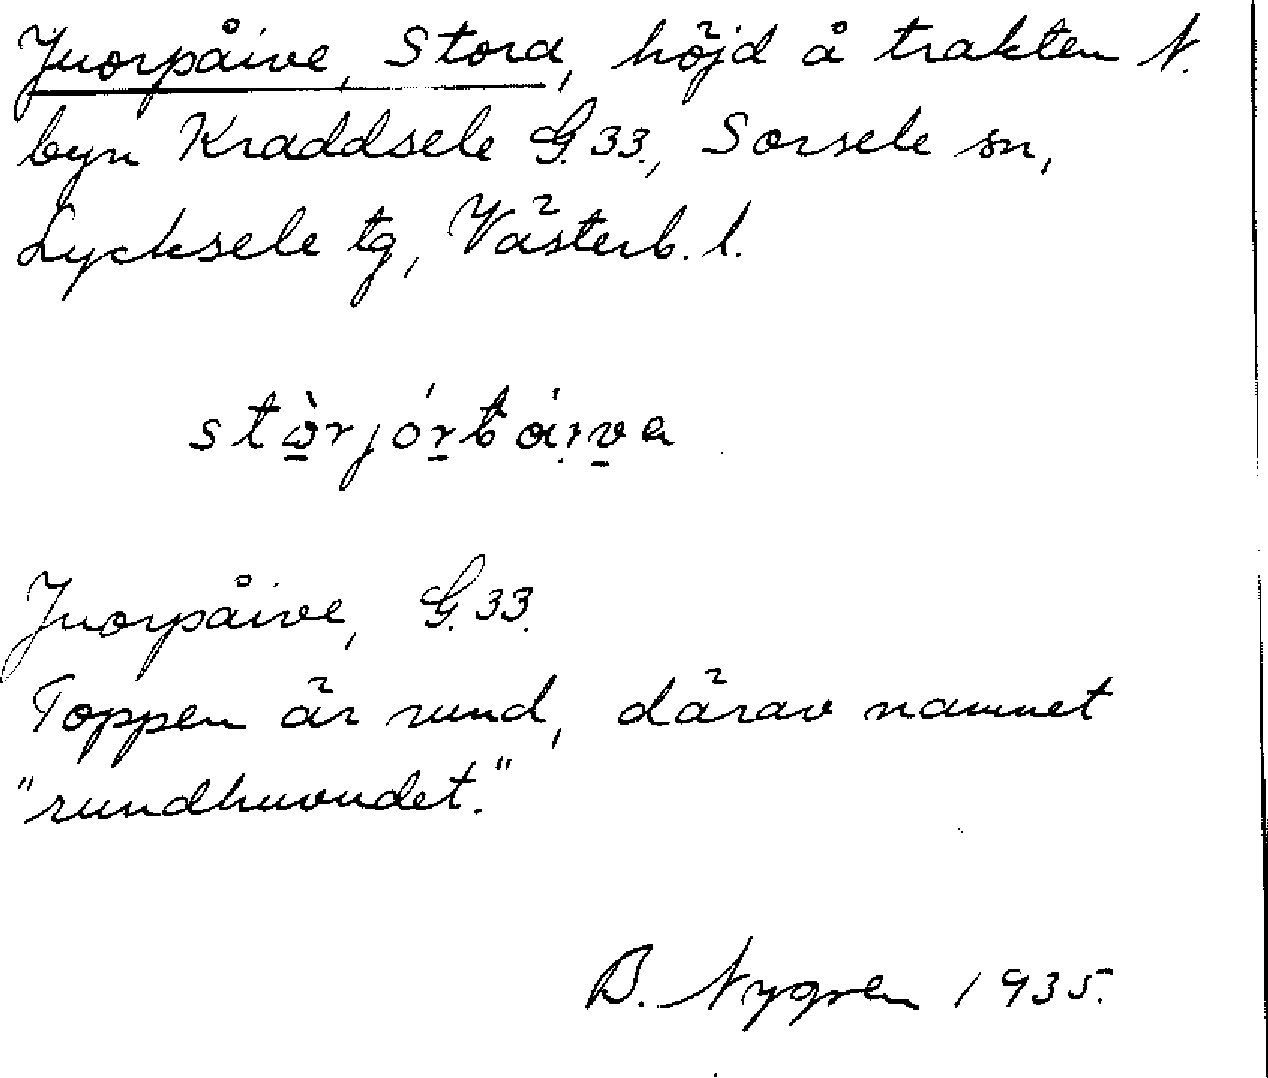 Juorpåive, Stora, höjd å trakten N.
byn Kraddsele G. 33., Sorsele sn,
Lycksele tg, Västerb. l.
Juorpåive, G. 33.
Toppen är rund, därav namnet
"rundhuvudet."
B. Nygren 1935.